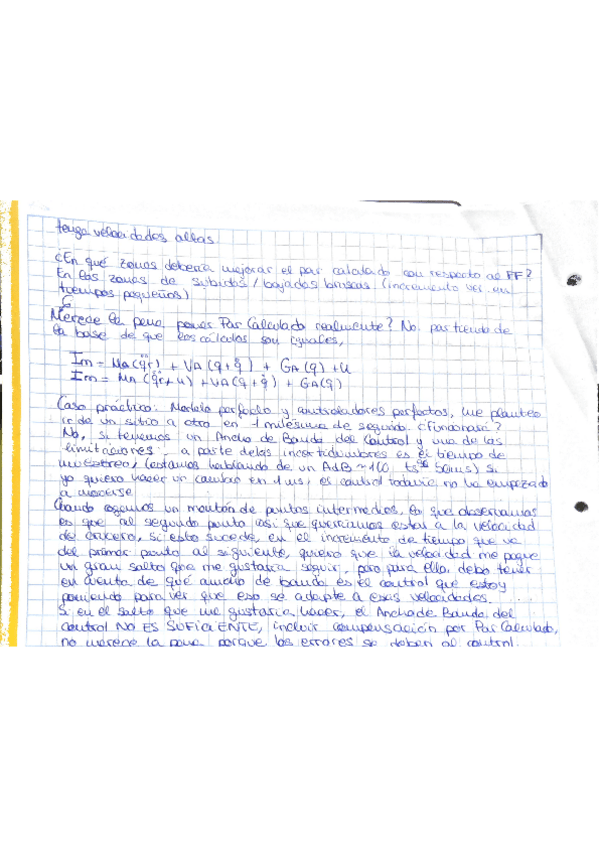 tenga velocidades altas.
¿En qué zonas debería mejorar el par calculado con respecto al FF?
En las zonas de subidas / bajadas bruscas (incremento ver. en
tiempos pequeños)
Merece la pena poner Par Calculado realmente? No, partiendo de
la base de que los cálculos son iguales,
Im = MA(q̈r) + VA(q+q̇) + GA(q) + u
Im = MA(q̈r+u) + VA(q+q̇) + GA(q)
Caso práctico: Modelo perfecto y controladores perfectos, me planteo
ir de un sitio a otro en 1 milésima de segundo. ¿Funcionará?
No, si tenemos un Ancho de Banda del control y una de las
limitaciones, a parte de las incertidumbres es el tiempo de
muestreo, (estamos hablando de un AdB ~ 160, ts 50ms) si
yo quiero hacer un cambio en 1 ms, el control todavía no ha empezado
a moverse.
Cuando cogemos un montón de puntos intermedios, lo que observamos
es que al segundo punto casi que queríamos estar a la velocidad
de crucero, si esto sucede, en el incremento de tiempo que va
del primer punto al siguiente, quiero que la velocidad me pegue
un gran salto que me gustaría seguir, pero para ello, debo tener
en cuenta de qué ancho de banda es el control que estoy
poniendo para ver que eso se adapte a esas velocidades.
Si en el salto que me gustaría hacer, el Ancho de Banda del
control NO ES SUFICIENTE, incluir compensación por Par Calculado,
no merece la pena porque los errores se deben al control.